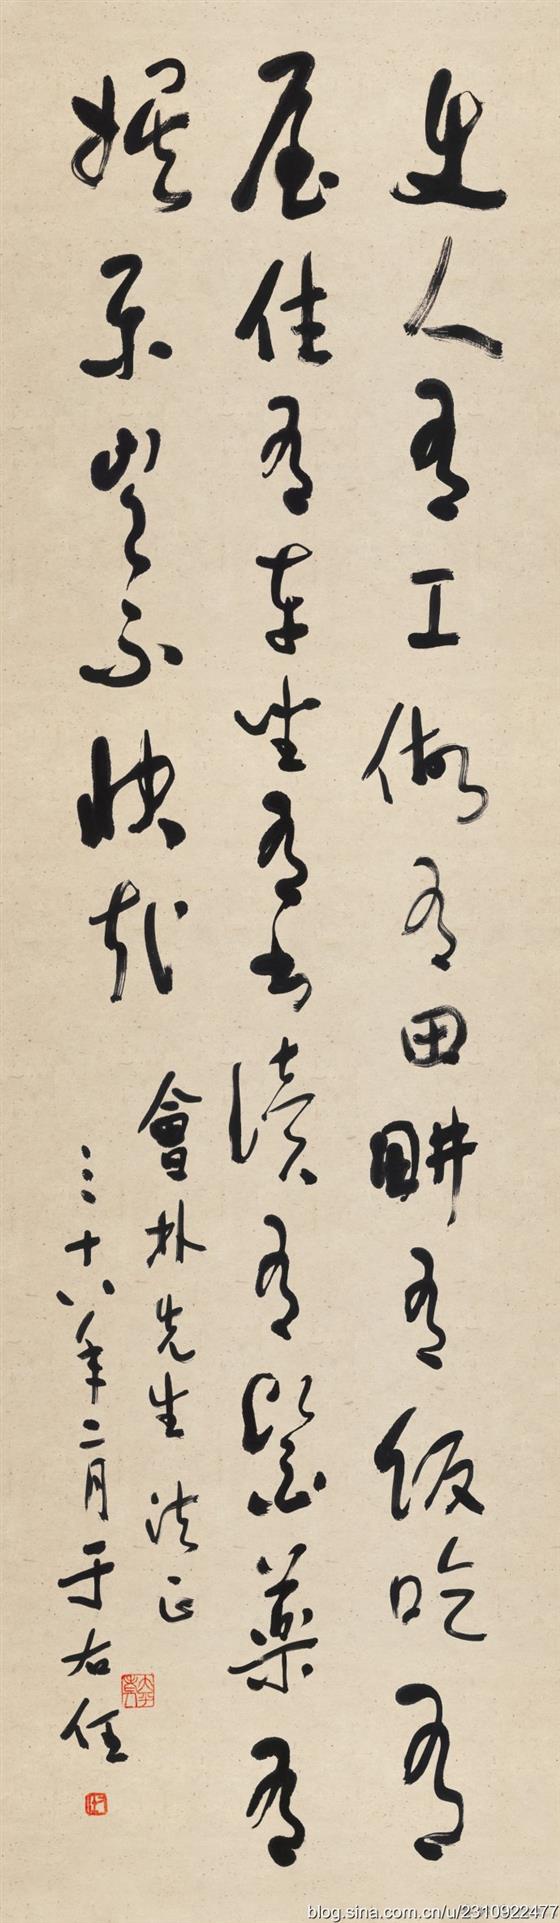 人有工做有田畊有飯吃有
屋住有車坐有書讀有醫藥有
娛樂豈不快哉
會朴先生 法正
三十八年二月于右任
blog.sina.com.cn/u/2310922477